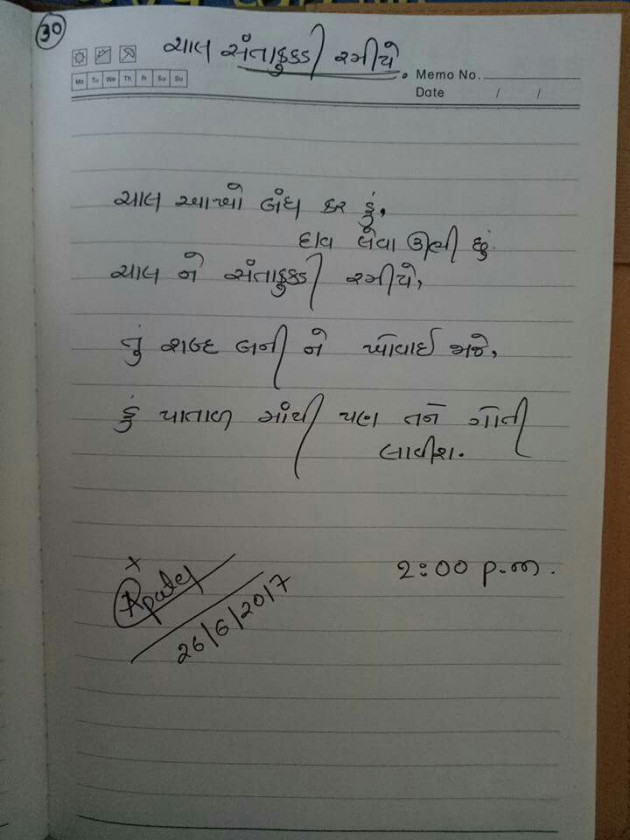 ૩૦
ચાલ સંતાકુકડી રમીયે.
Mo Tu We Th Fr Sa Su
Memo No.
Date / /
ચાલ આખો બંધ કર હું,
દાવ લેવા ઊભી છું
ચાલ ને સંતાકુકડી રમીયે,
તું શબ્દ બની ને ખોવાઈ જાજે,
હું પાતાળ માંથી પણ તને ગોતી
લાવીશ.
2:00 p.m.
Apatel
26/6/2017